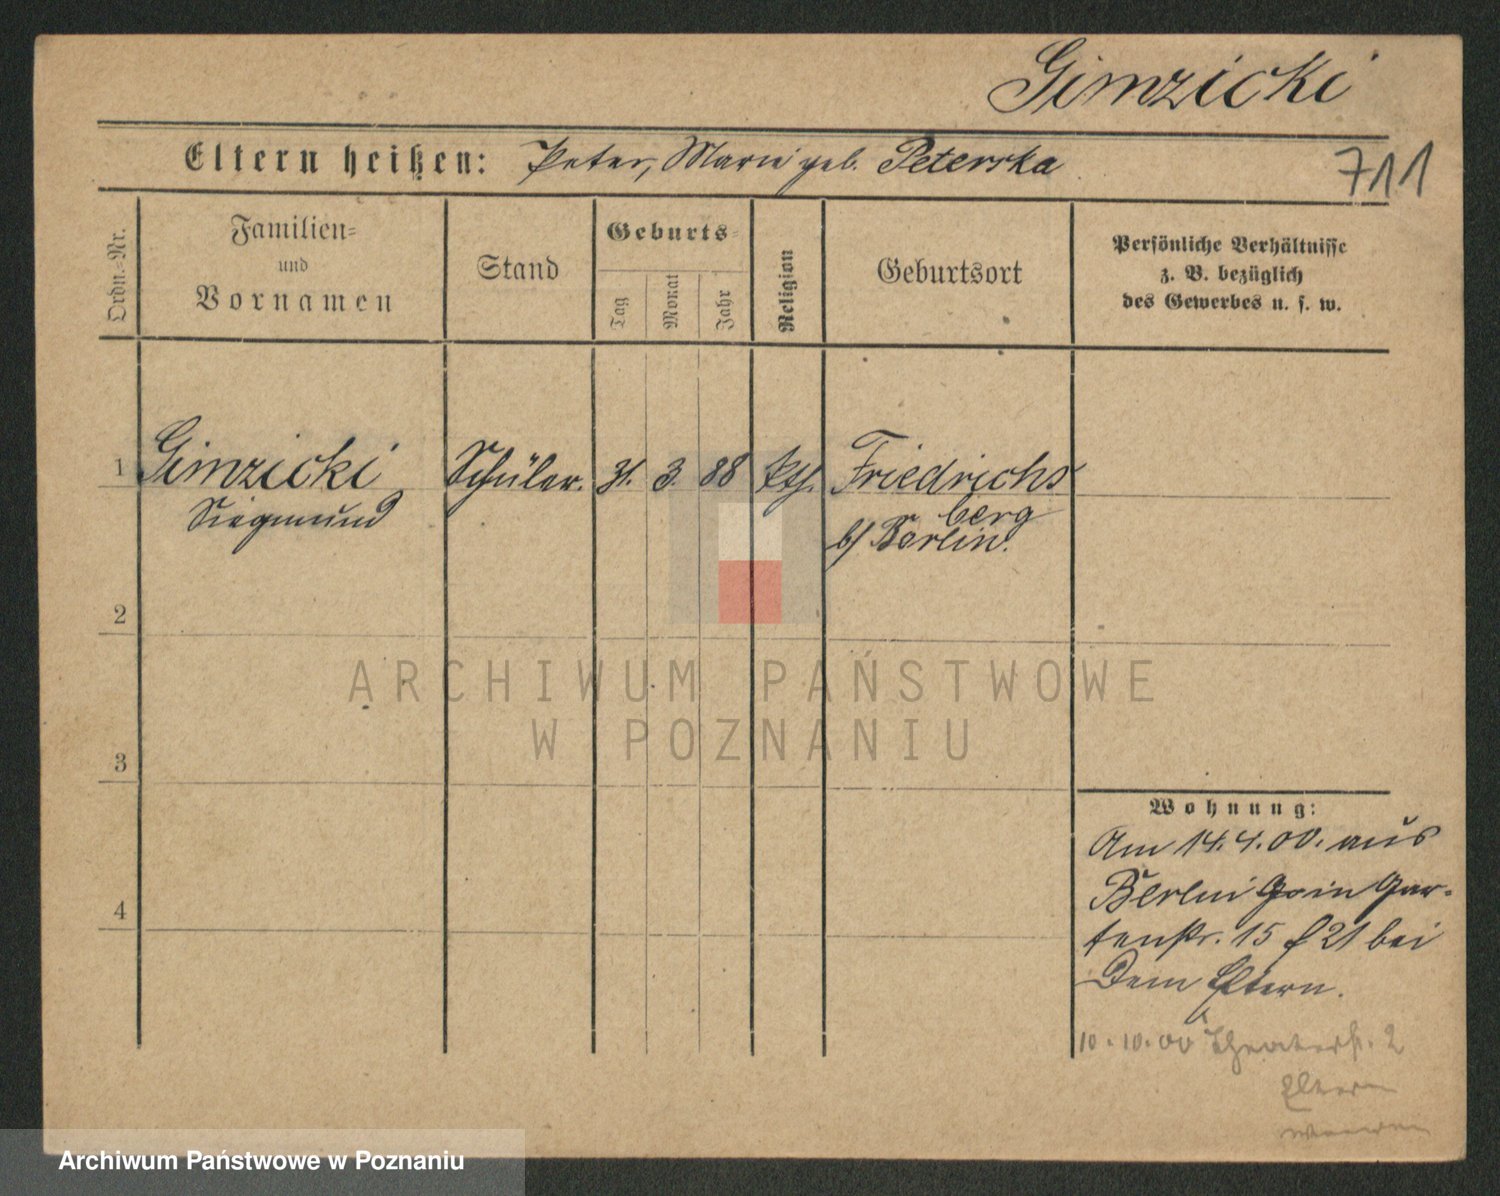 Gimzicki
Eltern heißen: Peter, Marie geb. Peterska
711
Ordn.-Nr.
Familien-
und
Vornamen
Stand
Geburts-
Tag
Monat
Jahr
Religion
Geburtsort
Persönliche Verhältnisse
z. B. bezüglich
des Gewerbes u. s. w.
1 Gimzicki Schüler. 31. 3. 88 kth. Friedrichs
Siegmund berg
b/ Berlin.
2
ARCHIWUM PAŃSTWOWE
W POZNANIU
3
Wohnung:
Am 14.4.00. aus
Berlin Gar-
4
tenstr. 15 21 bei
Dem Eltern.
10.10.00 Theaterstr. 2
Eltern
Archiwum Państwowe w Poznaniu